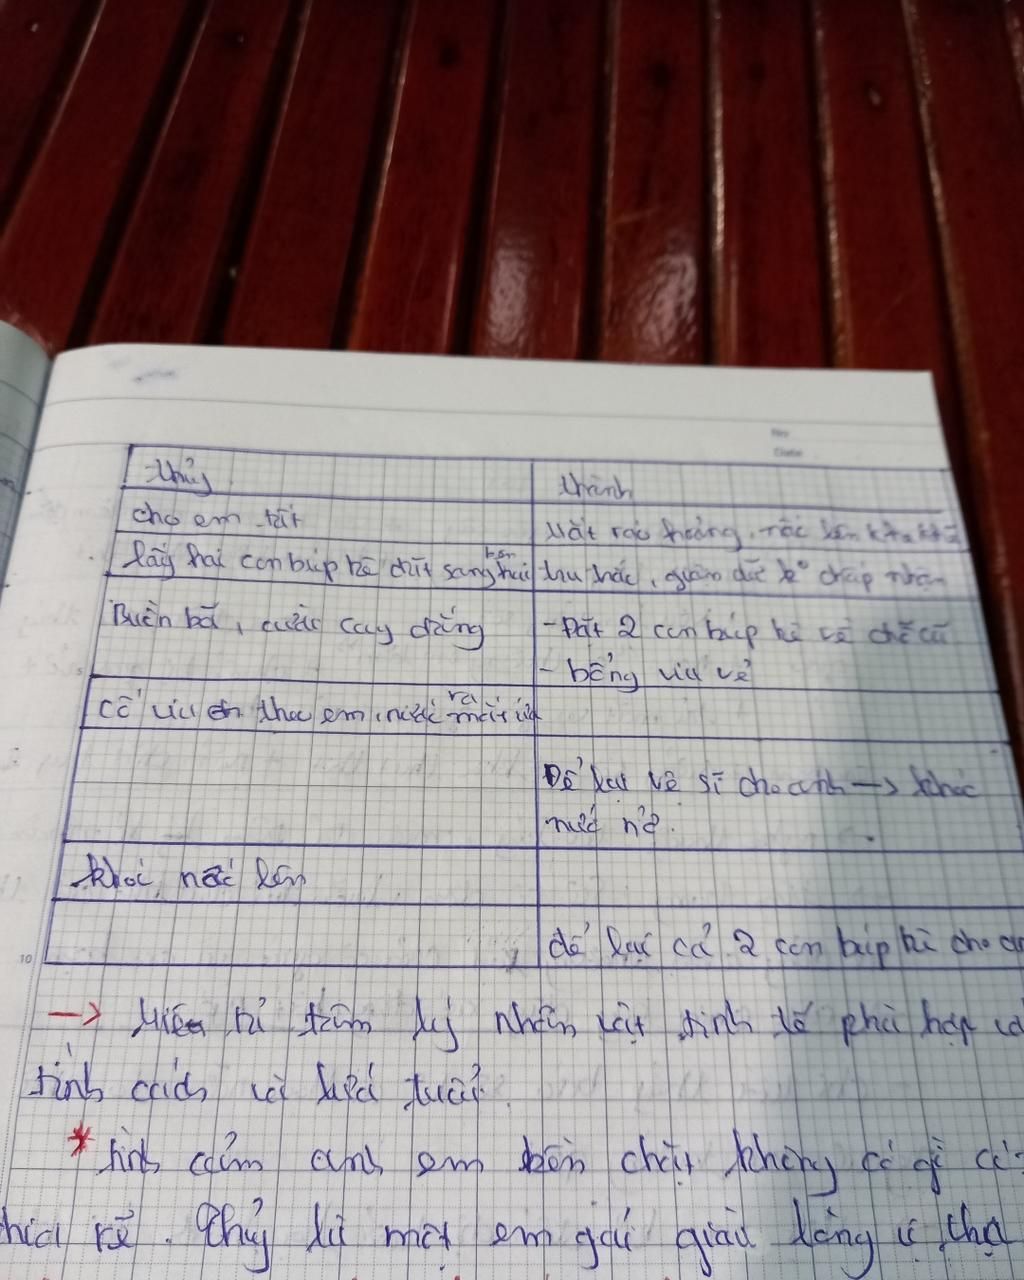 No.
Date
Thủy
Thành
cho em tất
lấy hai con búp bê đặt sang hai bên
thu hắc, giận dữ ko chấp nhận
Buồn bã, cười cay đắng
- Đặt 2 con búp bê về chỗ cũ
- bổng vui vẻ
cố vui theo em, nước ra
Để lại vệ sĩ cho anh -> khóc
nức nở.
khóc nấc lên
để lại cả 2 con búp bê cho
10
-> Miêu tả tâm lý nhân vật tinh tế phù hợp
tính cách và lứa tuổi.
* tình cảm anh em bền chặt không có gì có
chia rẽ. Thủy là một em gái giàu lòng vị tha